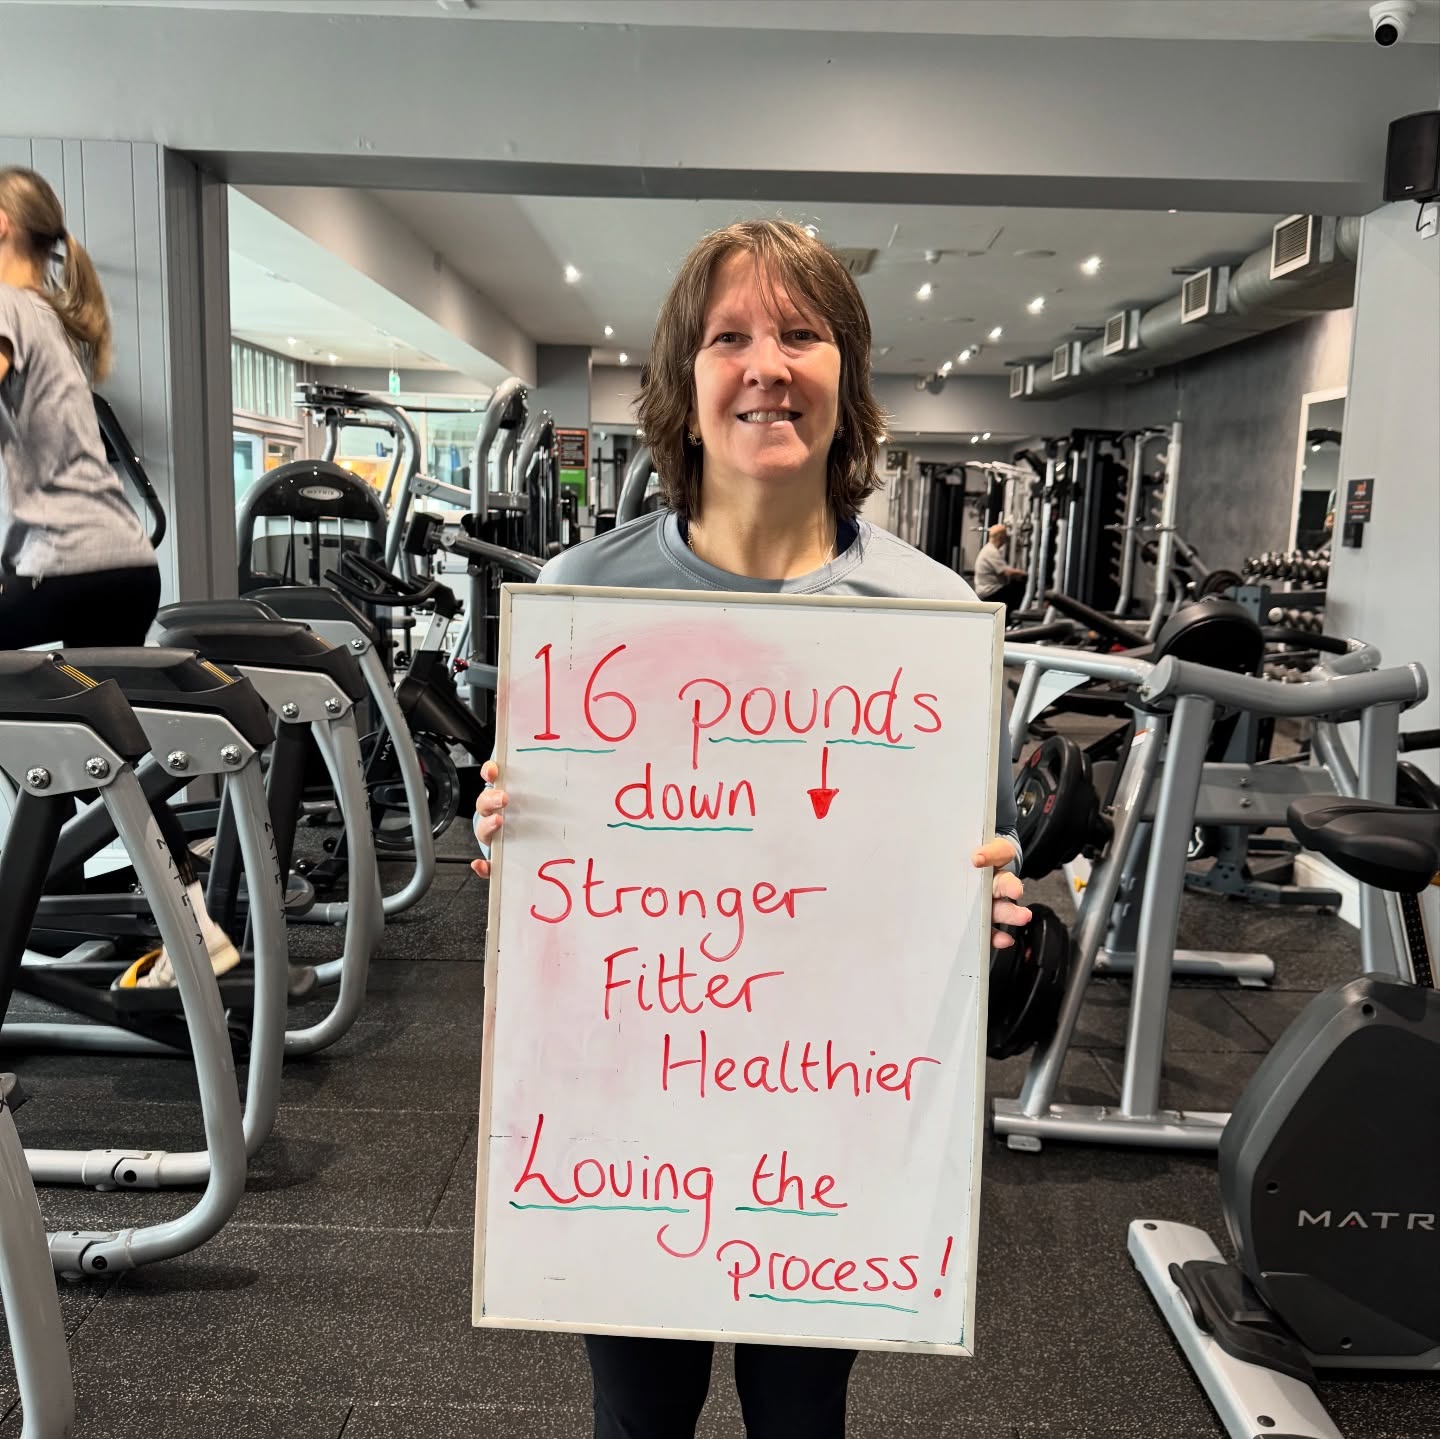 16 pounds
down
Stronger
Fitter
Healthier
Loving the
process!
MATRIX
MATRIX
MATRIX
MATR